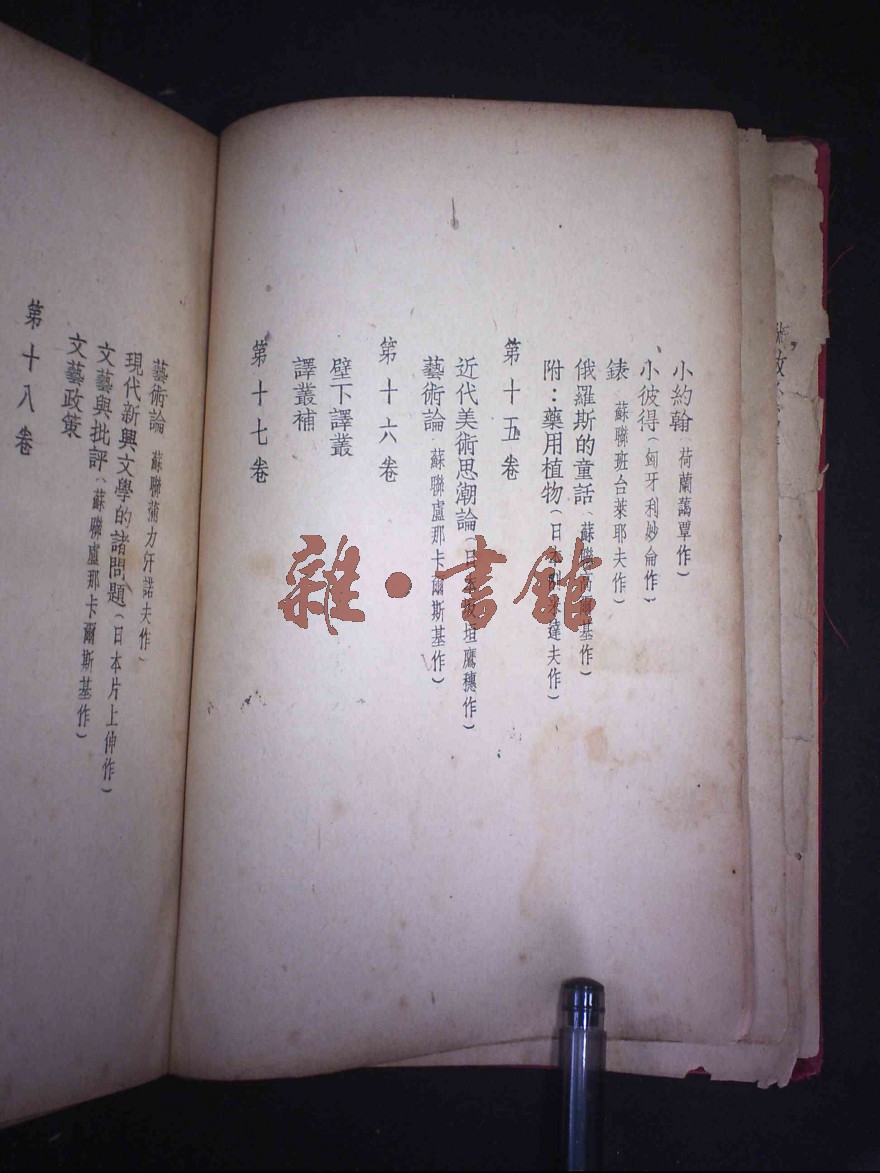 小約翰(荷蘭藹覃作)
小彼得(匈牙利妙侖作)
錶(蘇聯班台萊耶夫作)
俄羅斯的童話(蘇聯高爾基作)
附：藥用植物(日本刈米達夫作)
第十五卷
近代美術思潮論(日本坂垣鷹穗作)
藝術論(蘇聯盧那卡爾斯基作)
第十六卷
壁下譯叢
譯叢補
第十七卷
藝術論(蘇聯蒲力汗諾夫作)
現代新興文學的諸問題(日本片上伸作)
文藝與批評(蘇聯盧那卡爾斯基作)
文藝政策
第十八卷
雜·書館